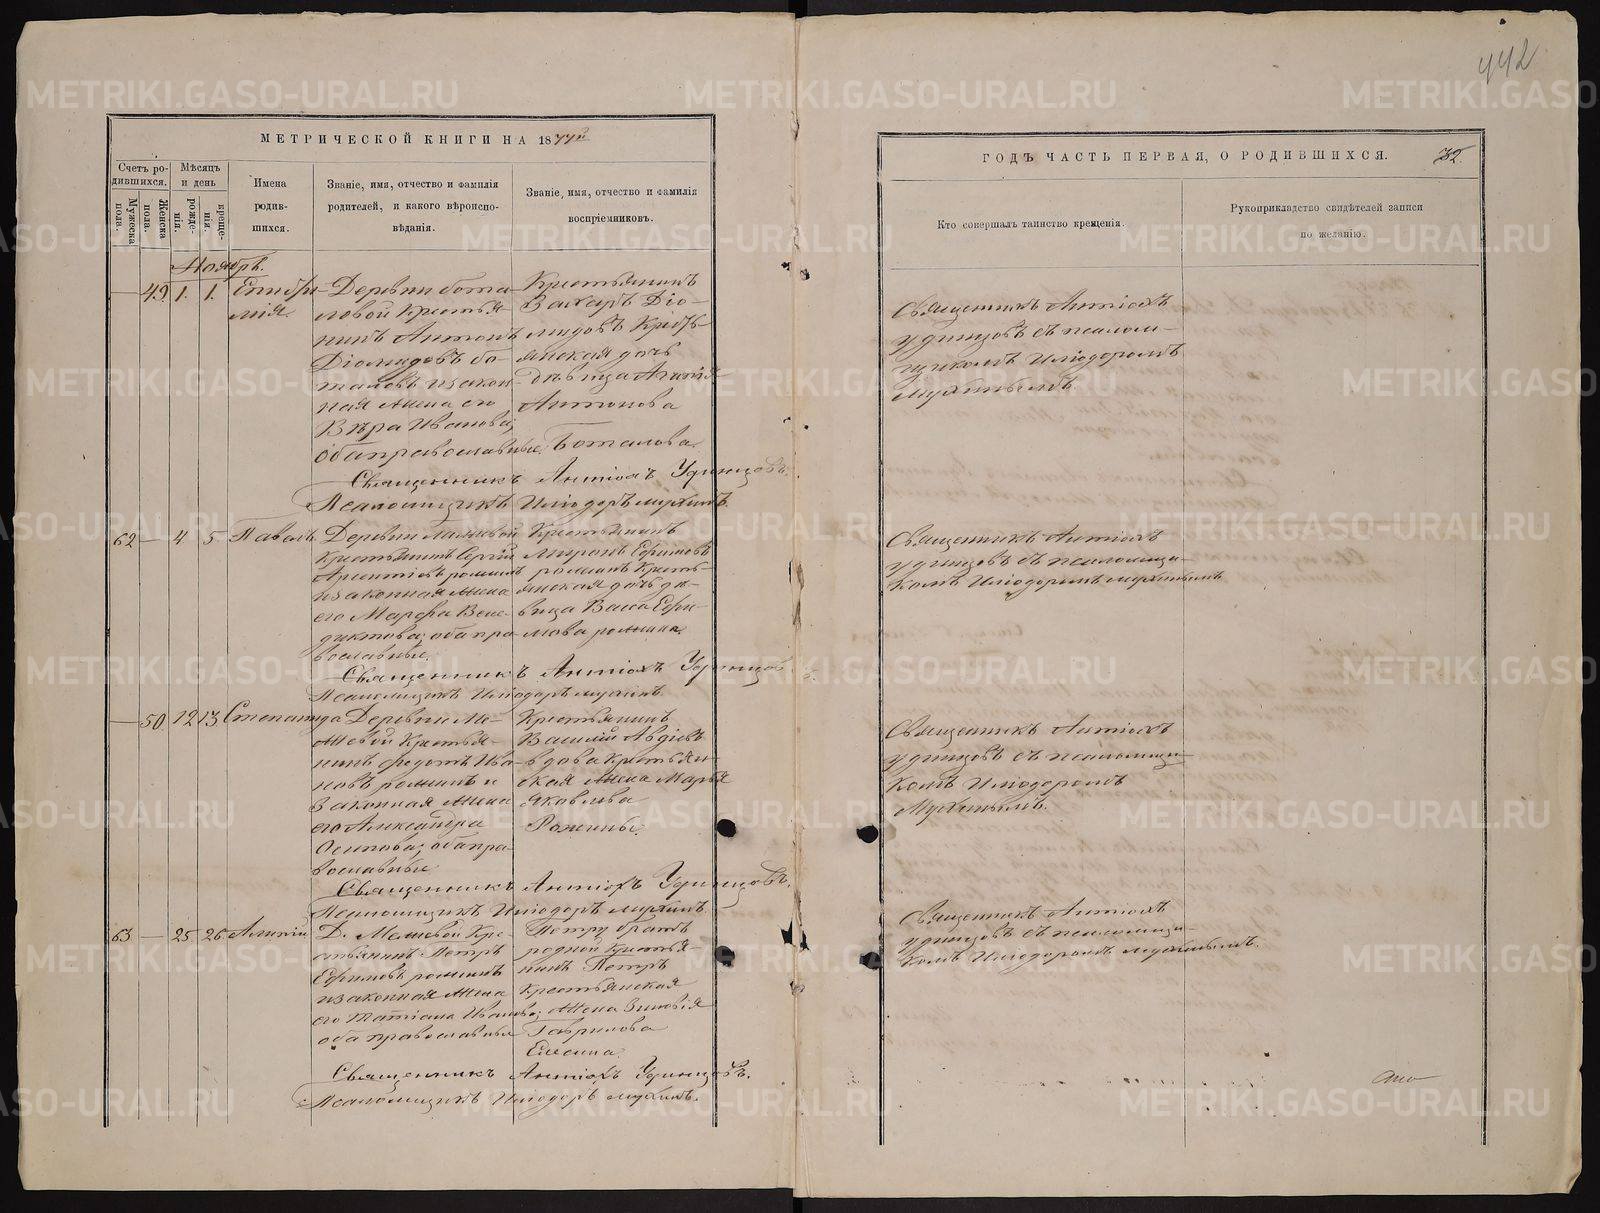 442
МЕТРИЧЕСКОЙ КНИГИ НА 1877й
ГОДЪ ЧАСТЬ ПЕРВАЯ, О РОДИВШИХСЯ.
32.
Счетъ ро-
дившихся.
Мужеска
пола.
Женска
пола.
Мѣсяцъ
и день
рожде-
нія.
креще-
нія.
Имена
родив-
шихся.
Званіе, имя, отчество и фамилія
родителей, и какого вѣроиспо-
вѣданія.
Званіе, имя, отчество и фамилія
воспріемниковъ.
Кто совершалъ таинство крещенія.
Рукоприкладство свидѣтелей записи
по желанію.
Ноябрь.
49 1. 1.
Деревни Бота-
ловой Крестья-
нинъ Антонъ
Діомидовъ Бо-
таловъ и закон-
ная жена его
Вѣра Иванова;
оба православные.
Крестьянинъ
Захаръ Діо-
мидовъ Кресть-
янская дочь
дѣвица
Антонова
Боталова.
Священникъ Антіохъ
Удинцовъ съ псалом-
щикомъ Иліодоромъ
Мухинымъ.
Священникъ Антіохъ Удинцовъ.
Псаломщикъ Иліодоръ Мухинъ.
62 — 4 5 Павелъ
Деревни
Крестьянинъ Сергій
и законная жена
его Марѳа Вене-
диктова; оба пра-
вославные.
Крестьянинъ
Миронъ Ефимовъ
Кресть-
янская дочь дѣ-
вица Васса Ефи-
мова
Священникъ Антіохъ
Удинцовъ съ псаломщи-
комъ Иліодоромъ Мухинымъ
Священникъ Антіохъ Удинцовъ
Псаломщикъ Иліодоръ Мухинъ.
— 50 12 13 Степанида
Деревни
Крестья-
нинъ Ѳедотъ Ива-
новъ и
законная жена
его Александра
Осипова; оба пра-
вославные
Крестьянинъ
Василій Авдіевъ
вдова крестьян-
ская жена Марья
Яковлева
Священникъ Антіохъ
Удинцовъ съ псаломщи-
комъ Иліодоромъ
Мухинымъ.
Священникъ Антіохъ Удинцовъ.
Псаломщикъ Иліодоръ Мухинъ.
63 — 25 26 Алипій
Д. Кре-
стьянинъ Петръ
Ефимовъ
и законная жена
его Татіана Иванова;
оба православные
Петру братъ
родной крестья-
нинъ Петръ
крестьянская
жена Зиновія
Гаврилова
Священникъ Антіохъ
Удинцовъ съ псаломщи-
комъ Иліодоромъ Мухинымъ.
Священникъ Антіохъ Удинцовъ.
Псаломщикъ Иліодоръ Мухинъ.
METRIKI.GASO-URAL.RU